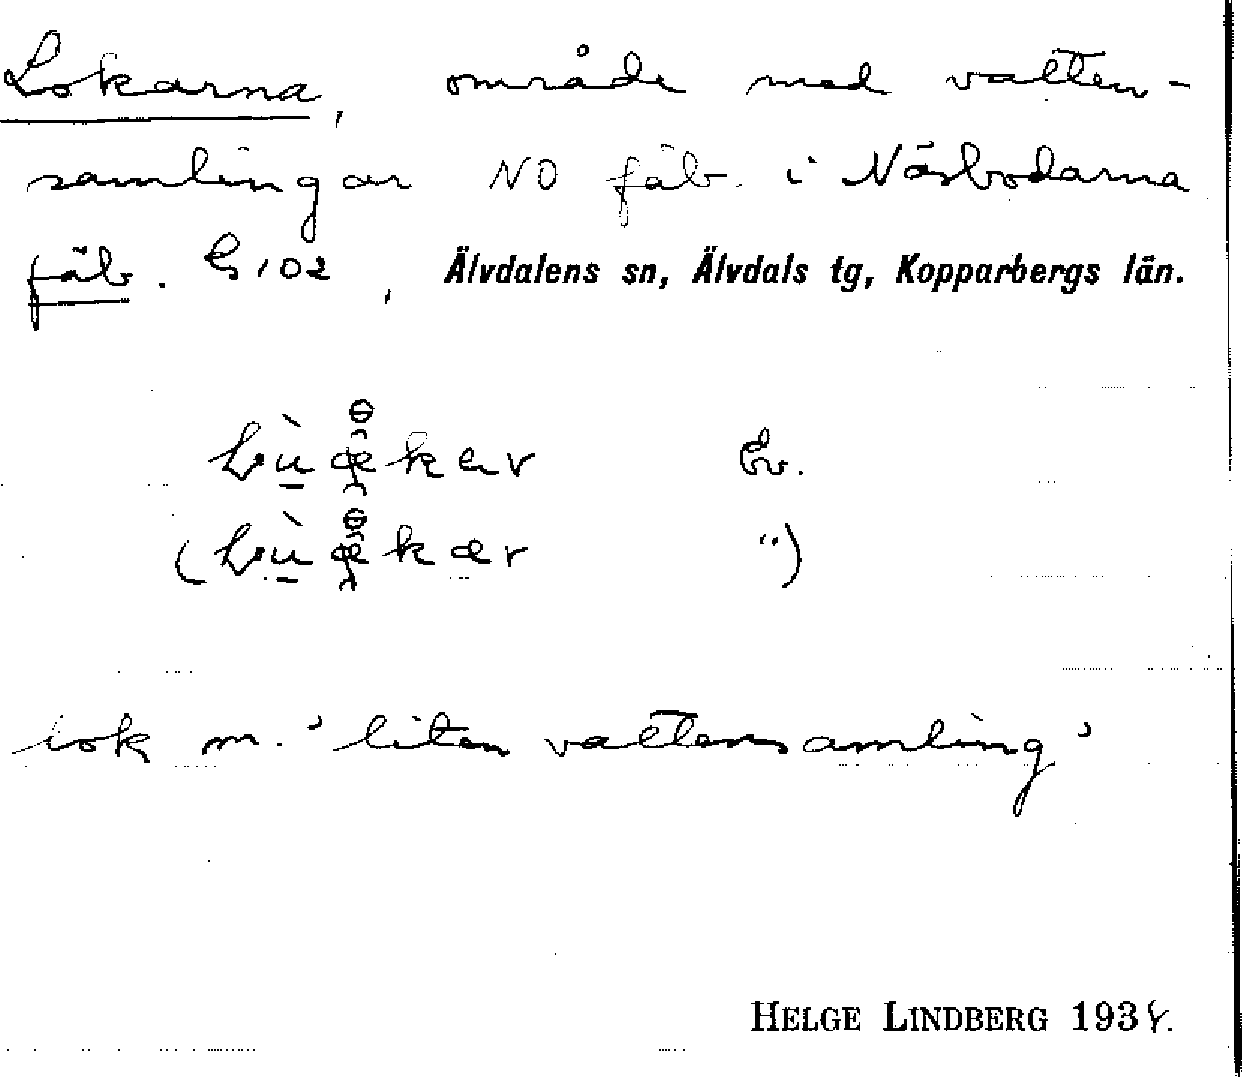 Lokarna, område med vatten-
samlingar NO fäb. i Näsbodarna
fäb. G 102, Älvdalens sn, Älvdals tg, Kopparbergs län.
Ev.
( ")
lok m. 'liten vattensamling'
HELGE LINDBERG 1934.